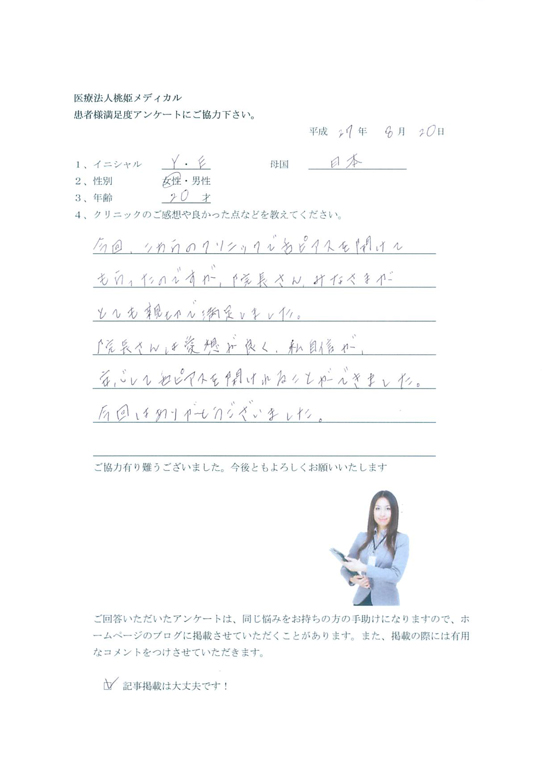 医療法人桃姫メディカル
患者様満足度アンケートにご協力下さい。
平成 29年 8月 20日
1、イニシャル Y・E 母国 日本
2、性別 女性・男性
3、年齢 20才
4、クリニックのご感想や良かった点などを教えてください。
今回、こちらのクリニックでピアスを開けて
もらったのですが、院長さん、みなさまが
とても親切で満足しました。
院長さんは愛想が良く、私自信が、
安心してピアスを開けれることができました。
今回はありがとうございました。
ご協力有り難うございました。今後ともよろしくお願いいたします
ご回答いただいたアンケートは、同じ悩みをお持ちの方の手助けになりますので、ホ
ームページのブログに掲載させていただくことがあります。また、掲載の際には有用
なコメントをつけさせていただきます。
記事掲載は大丈夫です！